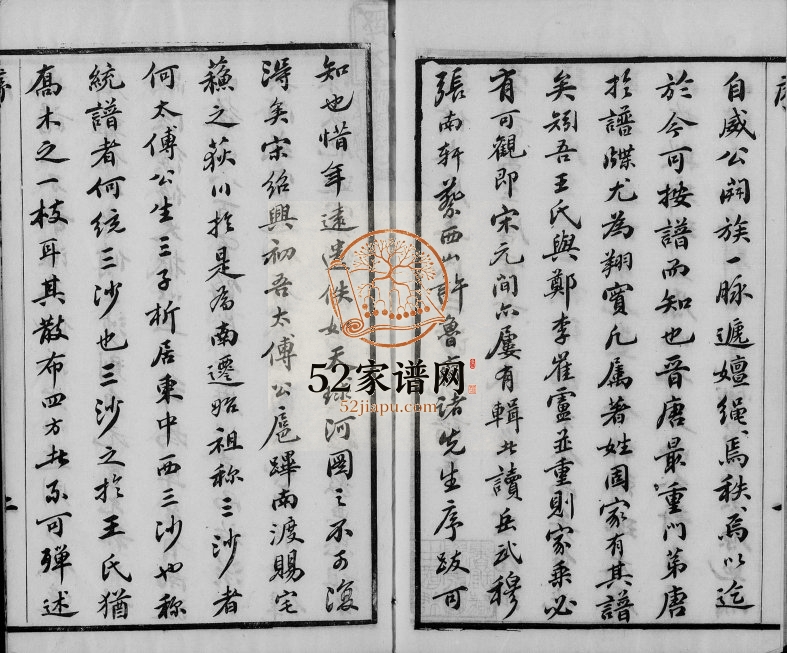 自威公開族一脉遞嬗繩〻焉秩〻焉以迄
於今可按譜而知也晉唐最重門第唐
於譜牒尤為翔實凡属著姓囯家有其譜
矣矧吾王氏與鄭李崔盧並重則家乘必
有可觀即宋元间亦屢有輯者讀岳武穆
張南軒蔡西山許魯 諸先生序跋可
知也惜年遠遺佚如天 河圖之不可復
得矣宋紹興初吾太傅公扈蹕南渡賜宅
蘇之荻川於是為南遷始祖称三沙者
何太傅公生三子析居東中西三沙也称
統譜者何統三沙也三沙之於王氏猶
喬木之一枝耳其散布四方者不可殫述
序
二
52家谱网
52jiapu.com